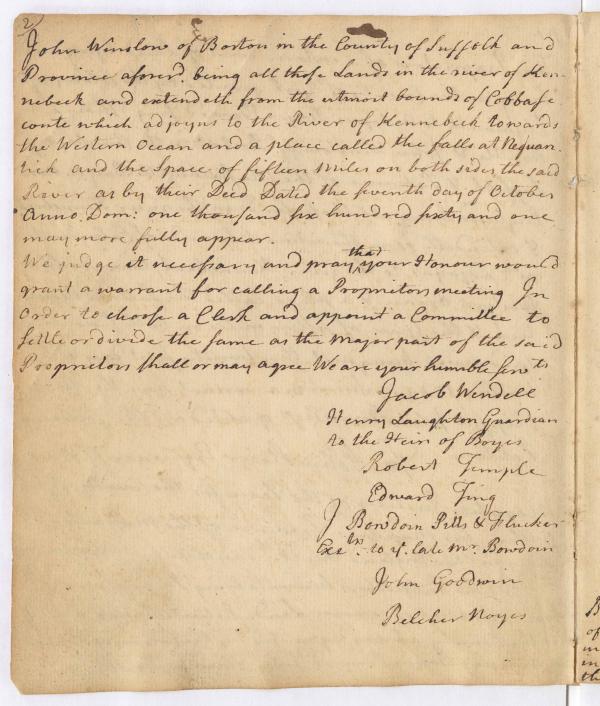 2
John Winslow of Boston in the County of Suffolk and
Province aforesd. being all those Lands in the river of Ken-
nebeck and extendeth from the utmost bounds of Cobbase
conte which adjoyns to the River of Kennebeck towards
the Western Ocean and a place called the falls at Nequan-
tick and the Space of fifteen Miles on both sides the said
River as by their Deed Dated the seventh day of October
Anno. Dom: one thousand six hundred sixty and one
may more fully appear.
We judge it necessary and pray that your Honour would
grant a warrant for calling a Proprietors meeting In
order to choose a Clerk and appoint a Committee to
settle or divide the same as the Major part of the said
Proprietors shall or may agree We are your humble Servts
Jacob Wendell
Henry Laughton Guardian
to the Heirs of Boyes
Robert Temple
Edward Ting
J Bowdoin Pitts & Flucker
Exetrs. to ye. late Mr. Bowdoin
John Goodwin
Belcher Noyes
of
in
in
th